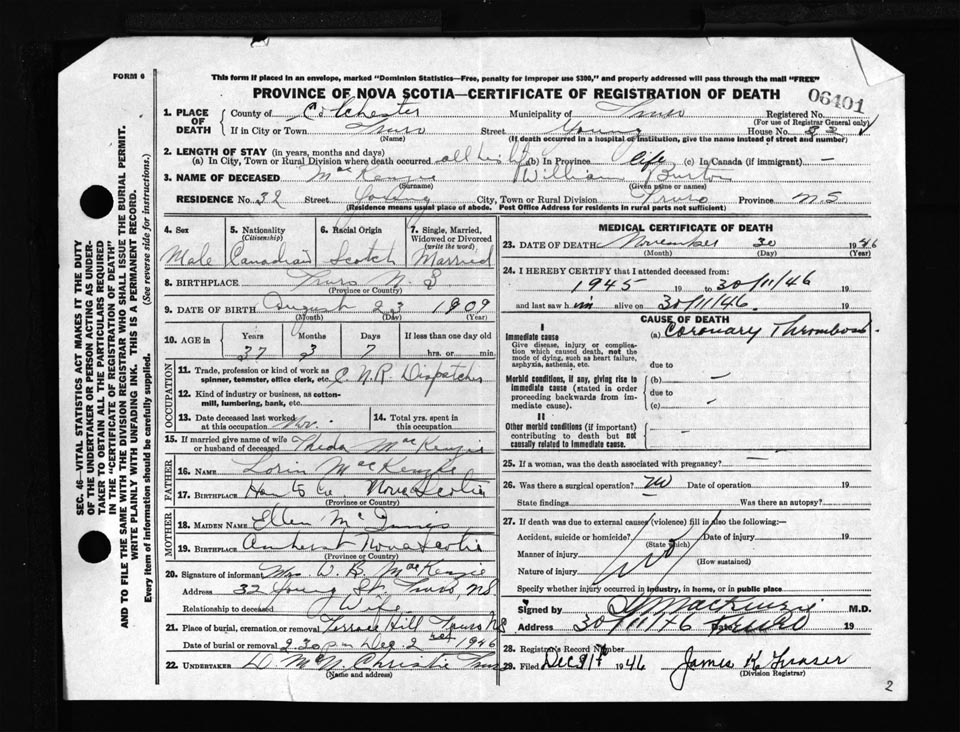 FORM 6
This form if placed in an envelope, marked "Dominion Statistics—Free, penalty for improper use $300," and properly addressed will pass through the mail "FREE"
PROVINCE OF NOVA SCOTIA—CERTIFICATE OF REGISTRATION OF DEATH
06401
1. PLACE OF DEATH
County of Colchester Municipality of Truro Registered No.
(For use of Registrar General only)
If in City or Town Truro Street Young House No. 32
(Name) (If death occurred in a hospital or institution, give the name instead of street and number)
2. LENGTH OF STAY (in years, months and days)
(a) In City, Town or Rural Division where death occurred all his life (b) In Province life (c) In Canada (if immigrant) —
3. NAME OF DECEASED MacKenzie William Burton
(Surname) (Given name or names)
RESIDENCE No. 32 Street Young City, Town or Rural Division Truro Province N.S
(Residence means usual place of abode. Post Office Address for residents in rural parts not sufficient)
4. Sex
Male
5. Nationality
(Citizenship)
Canadian
6. Racial Origin
Scotch
7. Single, Married, Widowed or Divorced
(write the word)
Married
8. BIRTHPLACE Truro N.S
(Province or Country)
9. DATE OF BIRTH August 23 1909
(Month) (Day) (Year)
10. AGE in Years Months Days If less than one day old
37 3 7 hrs. or min.
OCCUPATION
11. Trade, profession or kind of work as spinner, teamster, office clerk, etc. C.N.R. Dispatcher
12. Kind of industry or business, as cotton-mill, lumbering, bank, etc.
13. Date deceased last worked at this occupation Nov.
14. Total yrs. spent in this occupation
15. If married give name of wife or husband of deceased Theda MacKenzie
FATHER
16. NAME Lorin MacKenzie
17. BIRTHPLACE Hants Co Nova Scotia
(Province or Country)
MOTHER
18. MAIDEN NAME Ellen McInnis
19. BIRTHPLACE Amherst Nova Scotia
(Province or Country)
20. Signature of informant Mrs W. B. MacKenzie
Address 32 Young St. Truro NS.
Relationship to deceased Wife
21. Place of burial, cremation or removal Terrace Hill Truro NS
Date of burial or removal 2.30 pm Dec. 2 1946
22. UNDERTAKER D. McN. Christie Truro
(Name and address)
MEDICAL CERTIFICATE OF DEATH
23. DATE OF DEATH November 30 1946
(Month) (Day) (Year)
24. I HEREBY CERTIFY that I attended deceased from:
1945 19 to 30/11/46 19
and last saw him alive on 30/11/46 19
CAUSE OF DEATH
I
Immediate cause
Give disease, injury or complication which caused death, not the mode of dying, such as heart failure, asphyxia, asthenia, etc.
(a) Coronary Thrombosis
due to
Morbid conditions, if any, giving rise to immediate cause (stated in order proceeding backwards from immediate cause).
(b) —
due to
(c) —
II
Other morbid conditions (if important) contributing to death but not causally related to immediate cause.
—
25. If a woman, was the death associated with pregnancy? —
26. Was there a surgical operation? no Date of operation 19
State findings Was there an autopsy?
27. If death was due to external causes (violence) fill in also the following:—
Accident, suicide or homicide? Date of injury 19
(State which)
Manner of injury
(How sustained)
Nature of injury
Specify whether injury occurred in industry, in home, or in public place
Signed by MacKenzie M.D.
Address Truro Date 30/11/46 19
28. Registrar's Record Number
29. Filed Dec 1946 James K. Fraser
(Division Registrar)
2
SEC. 46—VITAL STATISTICS ACT MAKES IT THE DUTY
OF THE UNDERTAKER OR PERSON ACTING AS UNDER-
TAKER TO OBTAIN ALL THE PARTICULARS REQUIRED
IN THE "CERTIFICATE OF REGISTRATION OF DEATH"
AND TO FILE THE SAME WITH THE DIVISION REGISTRAR WHO SHALL ISSUE THE BURIAL PERMIT.
WRITE PLAINLY WITH UNFADING INK. THIS IS A PERMANENT RECORD.
Every item of information should be carefully supplied. (See reverse side for instructions.)